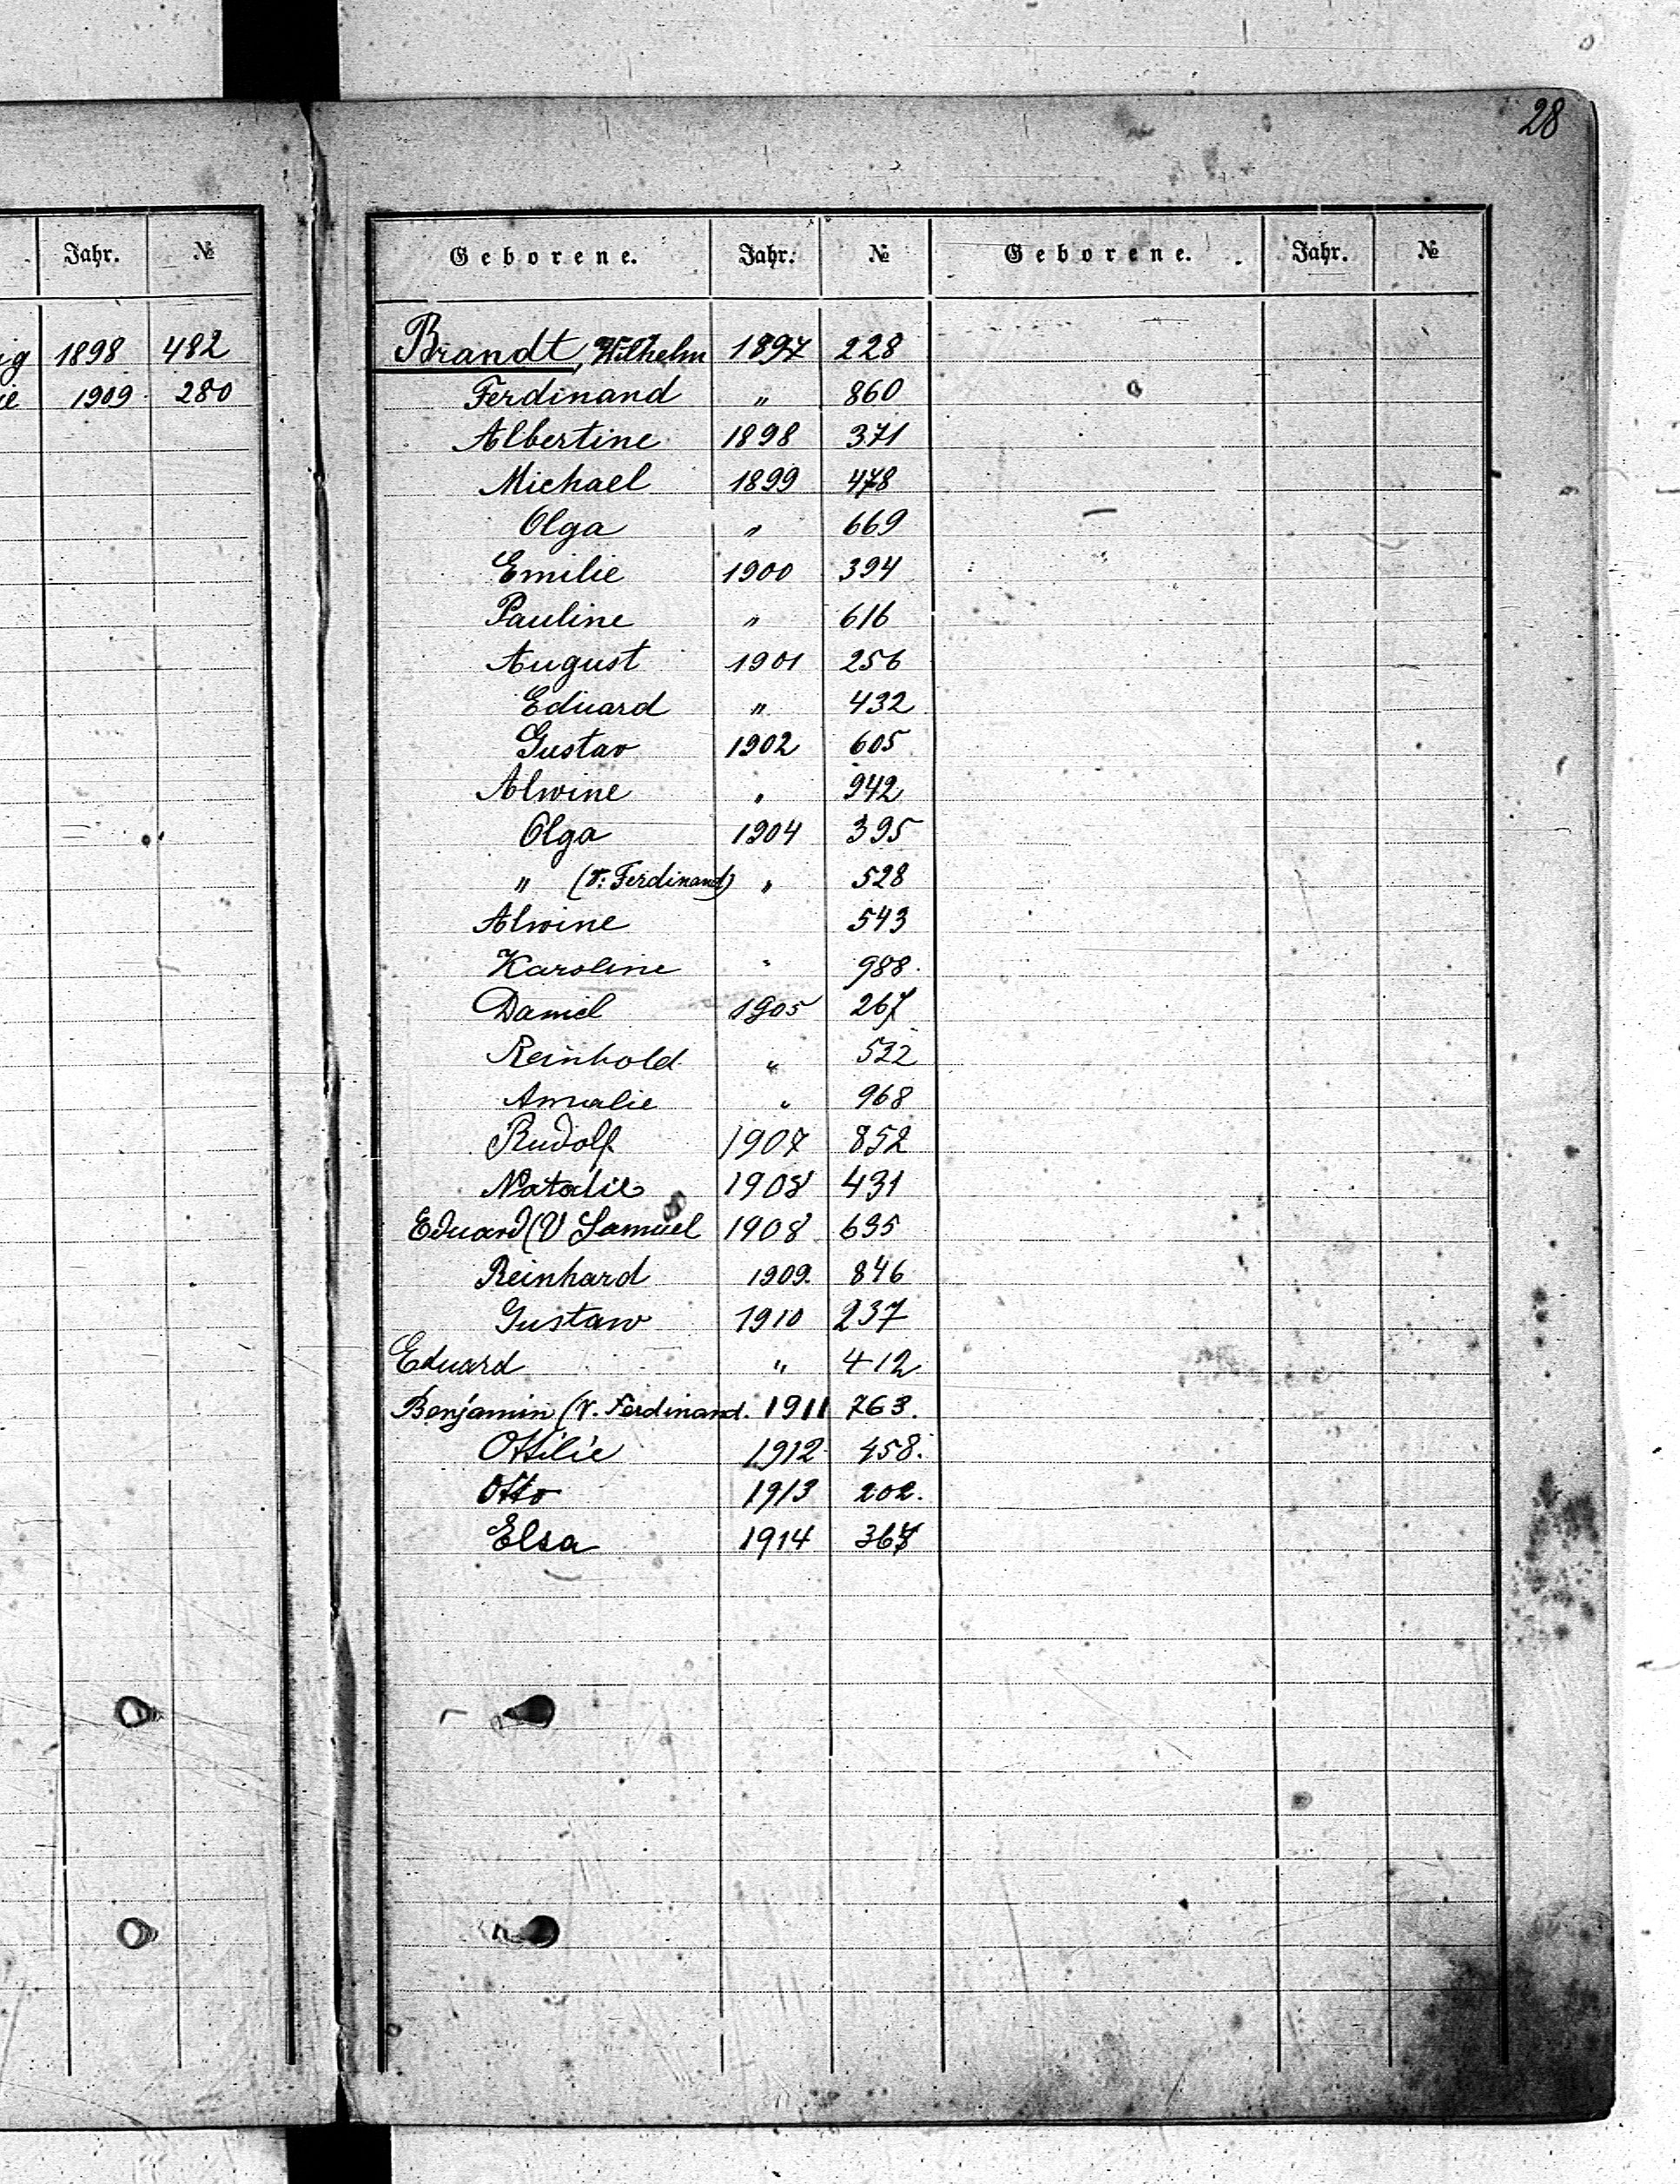 28
Jahr. №
ig 1898 482
ie 1909 280
Geborene. Jahr. № Geborene. Jahr. №
Brandt, Wilhelm 1897 228
Ferdinand " 860
Albertine 1898 371
Michael 1899 478
Olga " 669
Emilie 1900 394
Pauline " 616
August 1901 256
Eduard " 432
Gustav 1902 605
Alwine " 942
Olga 1904 395
" (V: Ferdinand) " 528
Alwine 543
Karoline " 988.
Daniel 1905 267
Reinhold " 532
Amalie " 968
Rudolf 1907 852
Natalie 1908 431
Eduard (V Samuel 1908 635
Reinhard 1909. 846
Gustaw 1910 237
Eduard " 412
Benjamin (V. Ferdinand. 1911 763.
Ottilie 1912 458.
Otto 1913 202.
Elsa 1914 367